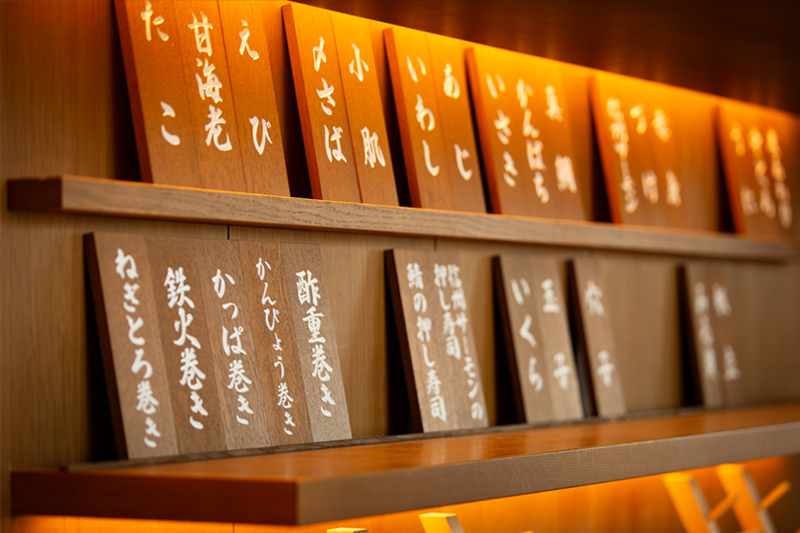 真鯛
かんぱち
いさき
あじ
いわし
小肌
〆さば
えび
甘海老
たこ
穴子
玉子
いくら
信州サーモンの
押し寿司
鯖の押し寿司
酢重巻き
かんぴょう巻き
かっぱ巻き
鉄火巻き
ねぎとろ巻き